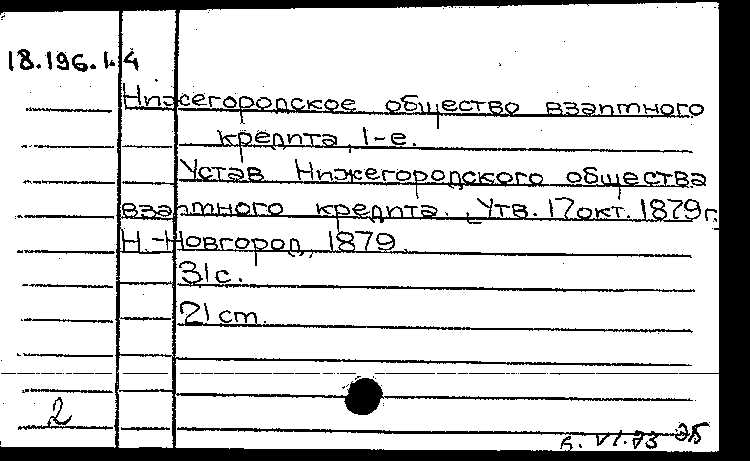 18.196.1.4
Нижегородское общество взаимного
кредита, 1-е.
Устав Нижегородского общества
взаимного кредита. Утв. 17 окт. 1879 г.
Н.-Новгород, 1879.
31 с.
21 cm.
2
VI.73